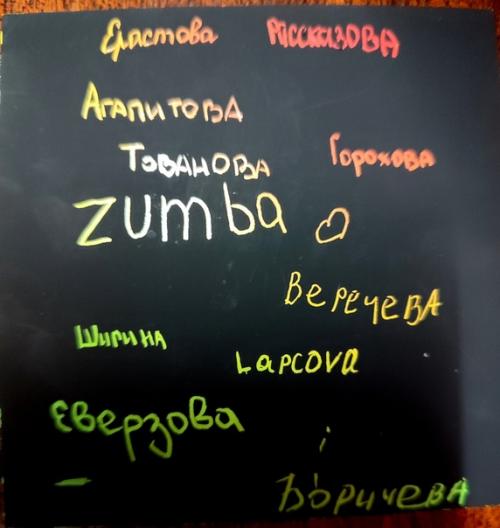 Ерастова Рассказова
Агапитова
Тованова Горохова
Zumba
Веречева
Ширина
Lapcova
Еверзова
Боричева